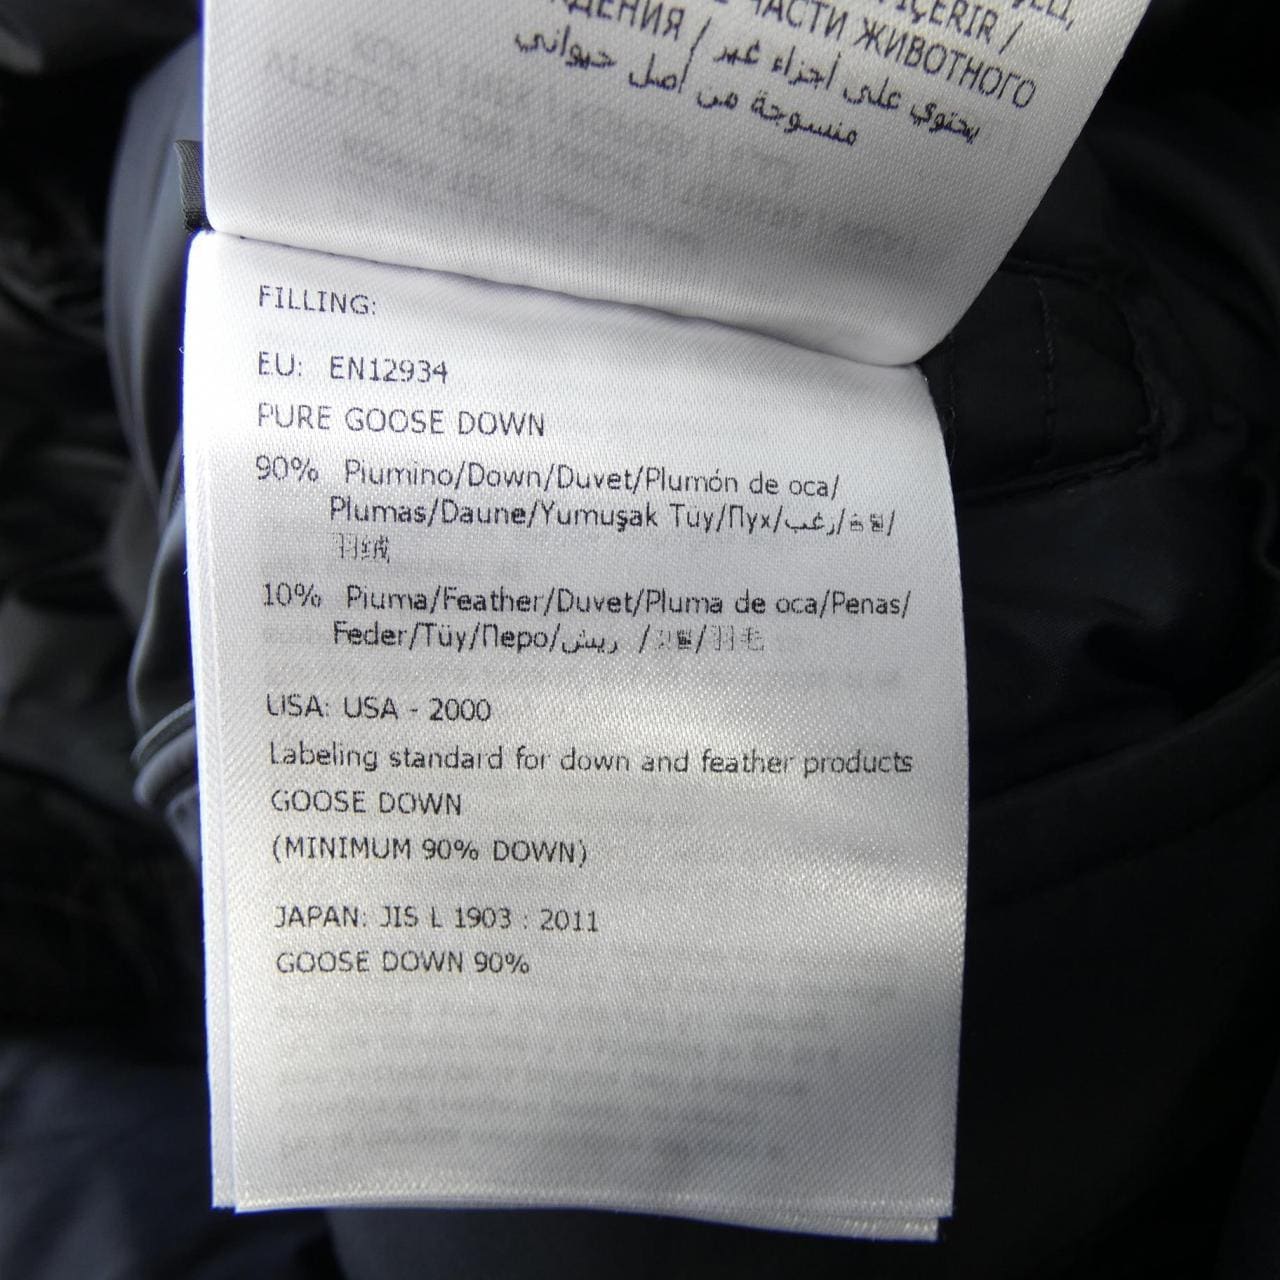 İÇERİR /
ЧАСТИ ЖИВОТНОГО
ЖДЕНИЯ / يحتوي على أجزاء غير
منسوجة من أصل حيواني
FILLING:
EU: EN12934
PURE GOOSE DOWN
90% Piumino/Down/Duvet/Plumón de oca/
Plumas/Daune/Yumuşak Tüy/Пух/زغب/
羽绒
10% Piuma/Feather/Duvet/Pluma de oca/Penas/
Feder/Tüy/Перо/ريش / /羽毛
USA: USA - 2000
Labeling standard for down and feather products
GOOSE DOWN
(MINIMUM 90% DOWN)
JAPAN: JIS L 1903 : 2011
GOOSE DOWN 90%